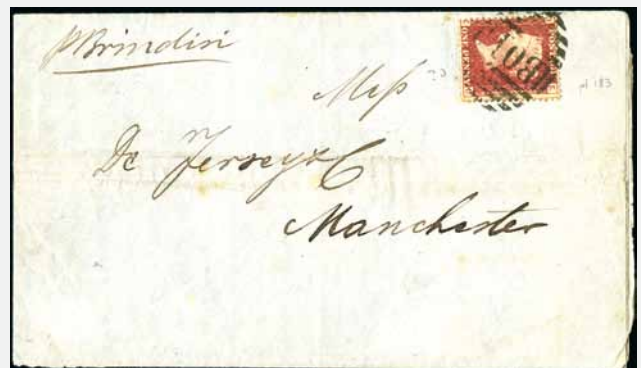 p Brindisi
Mess
De Jersey & C
Manchester
POSTAGE
ONE PENNY
B01
pl 183